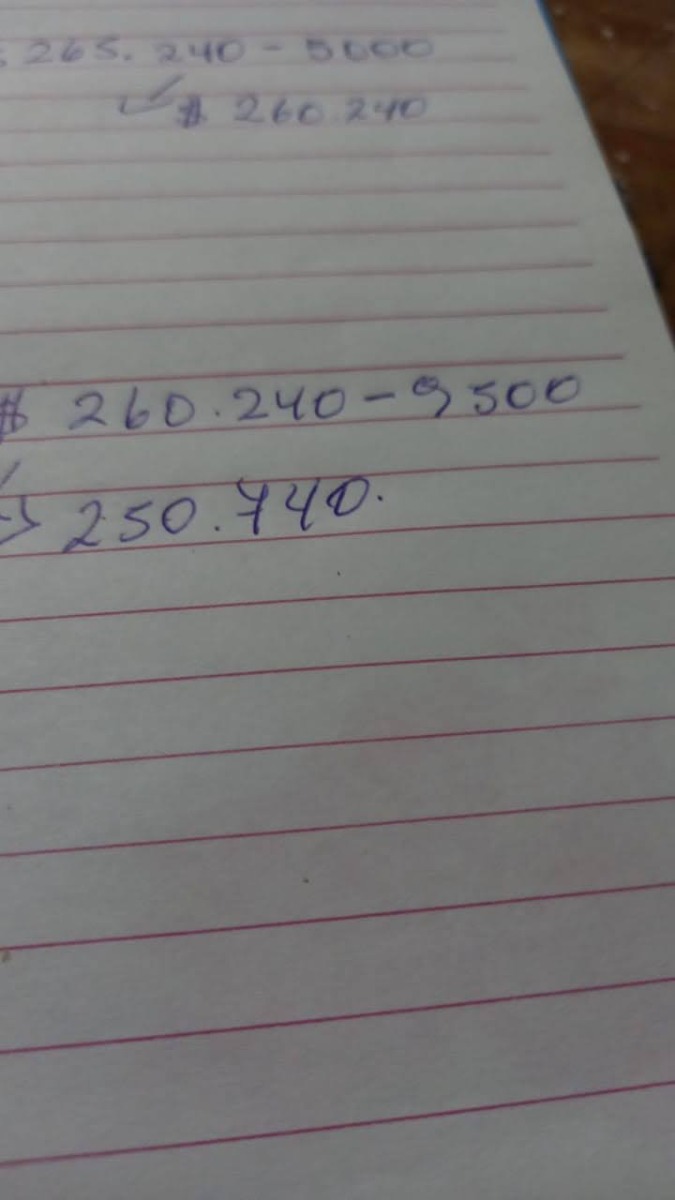 $ 265.240 - 5000
$ 260.240
$ 260.240 - 9500
→ 250.740.